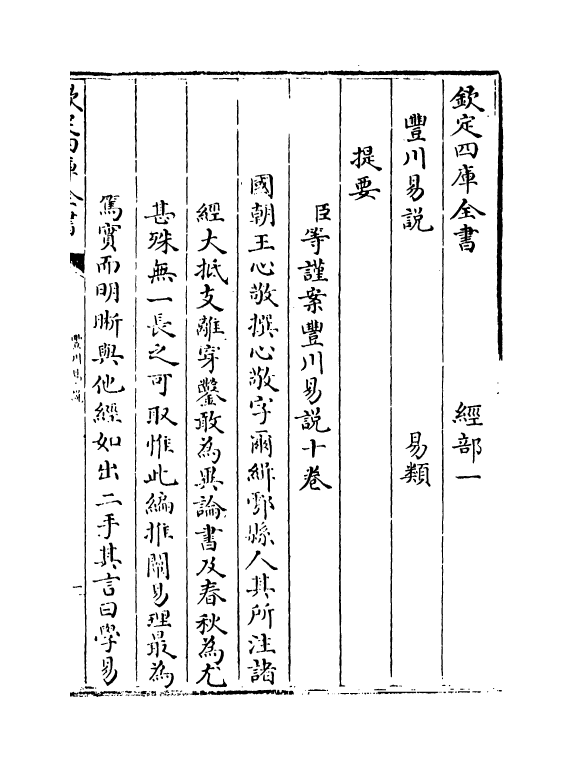 欽定四庫全書 經部一
豐川易説 易類
提要
臣等謹案豐川易説十卷
國朝王心敬撰心敬字爾緝鄠縣人其所注諸
經大抵支離穿鑿敢為異論書及春秋為尤
甚殊無一長之可取惟此編推闡易理最為
篤實而明晰與他經如出二手其言曰學易
欽定四庫全書
豐川易説
一